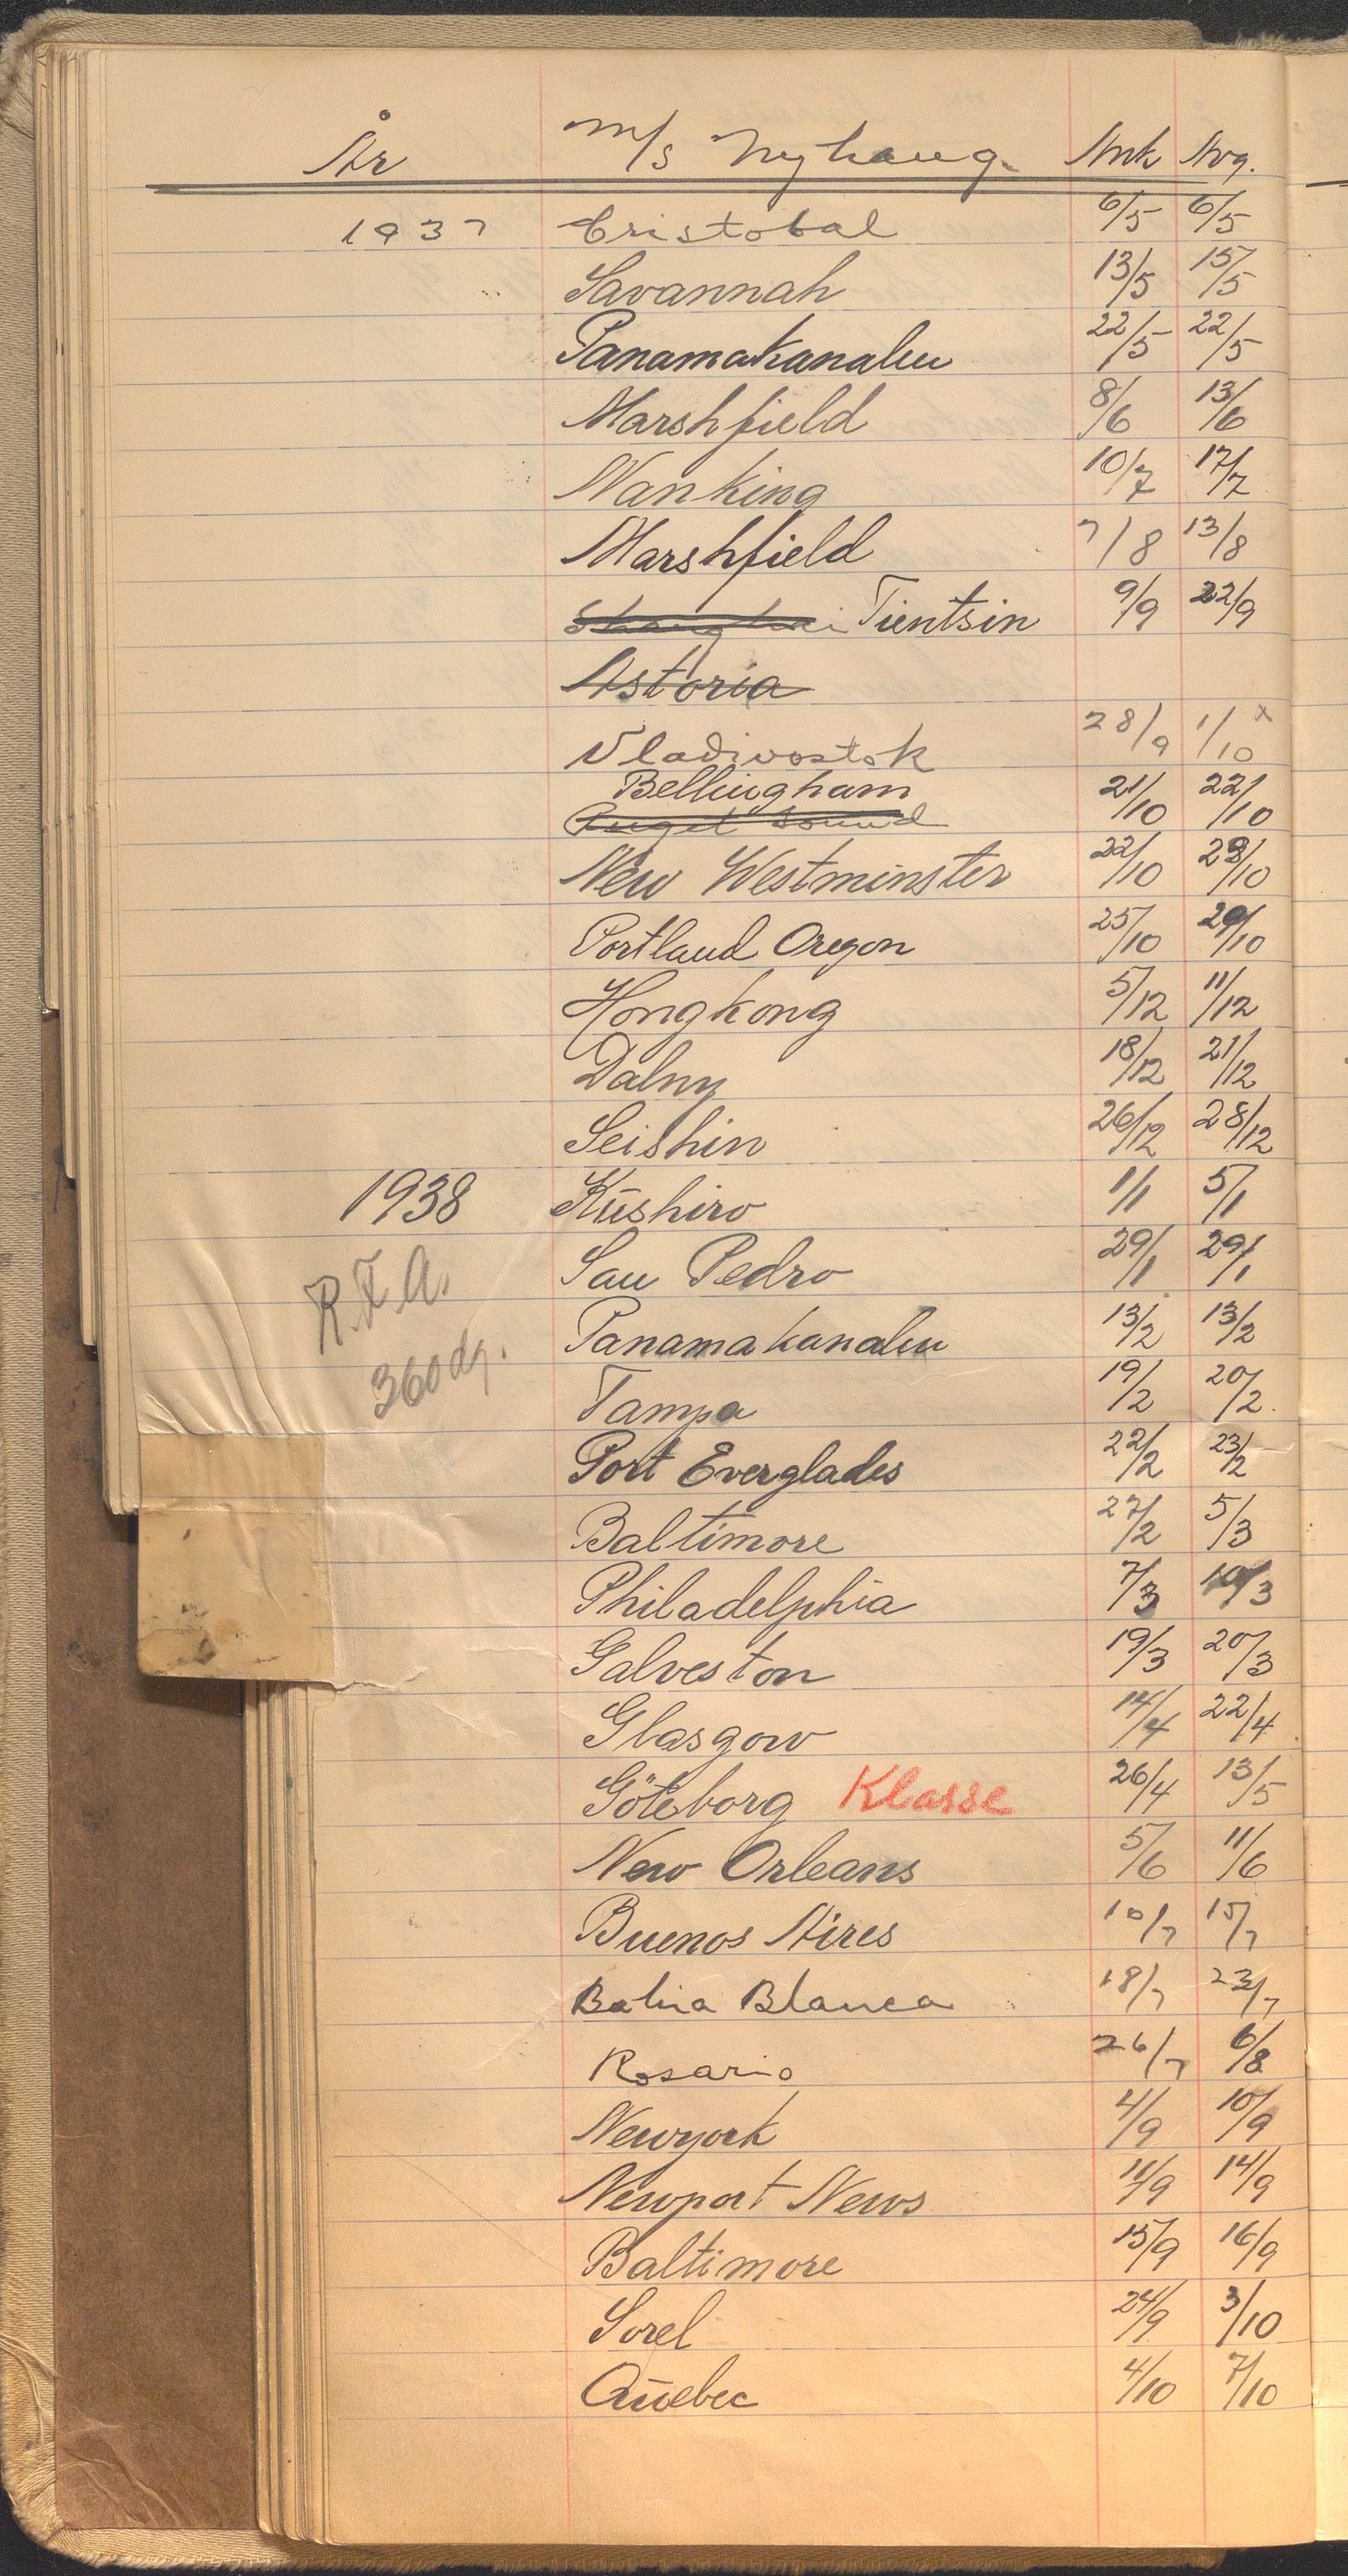 År m/s Nyhaug Ank Avg.
1937 Cristobal 6/5 6/5
Savannah 13/5 15/5
Panamakanalen 22/5 22/5
Marshfield 8/6 13/6
Nanking 10/7 17/7
Marshfield 7/8 13/8
Shanghai Tientsin 9/9 22/9
Astoria
Vladivostok 28/9 1/10 x
Bellingham 21/10 22/10
Puget Sound
New Westminster 22/10 28/10
Portland Oregon 25/10 29/10
Hongkong 5/12 11/12
Dalny 18/12 21/12
Seishin 26/12 28/12
1938 Kushiro 1/1 5/1
San Pedro 29/1 29/1
R.F.A.
Panamakanalen 13/2 13/2
360 dg.
Tampa 19/2 20/2.
Port Everglades 22/2 23/2
Baltimore 27/2 5/3
Philadelphia 7/3 10/3
Galveston 19/3 20/3
Glasgow 14/4 22/4
Göteborg Klasse 26/4 13/5
New Orleans 5/6 11/6
Buenos Aires 10/7 15/7
Bahia Blanca 18/7 23/7
Rosario 26/7 6/8
Newyork 4/9 10/9
Newport News 11/9 14/9
Baltimore 15/9 16/9
Sorel 24/9 3/10
Quebec 4/10 7/10